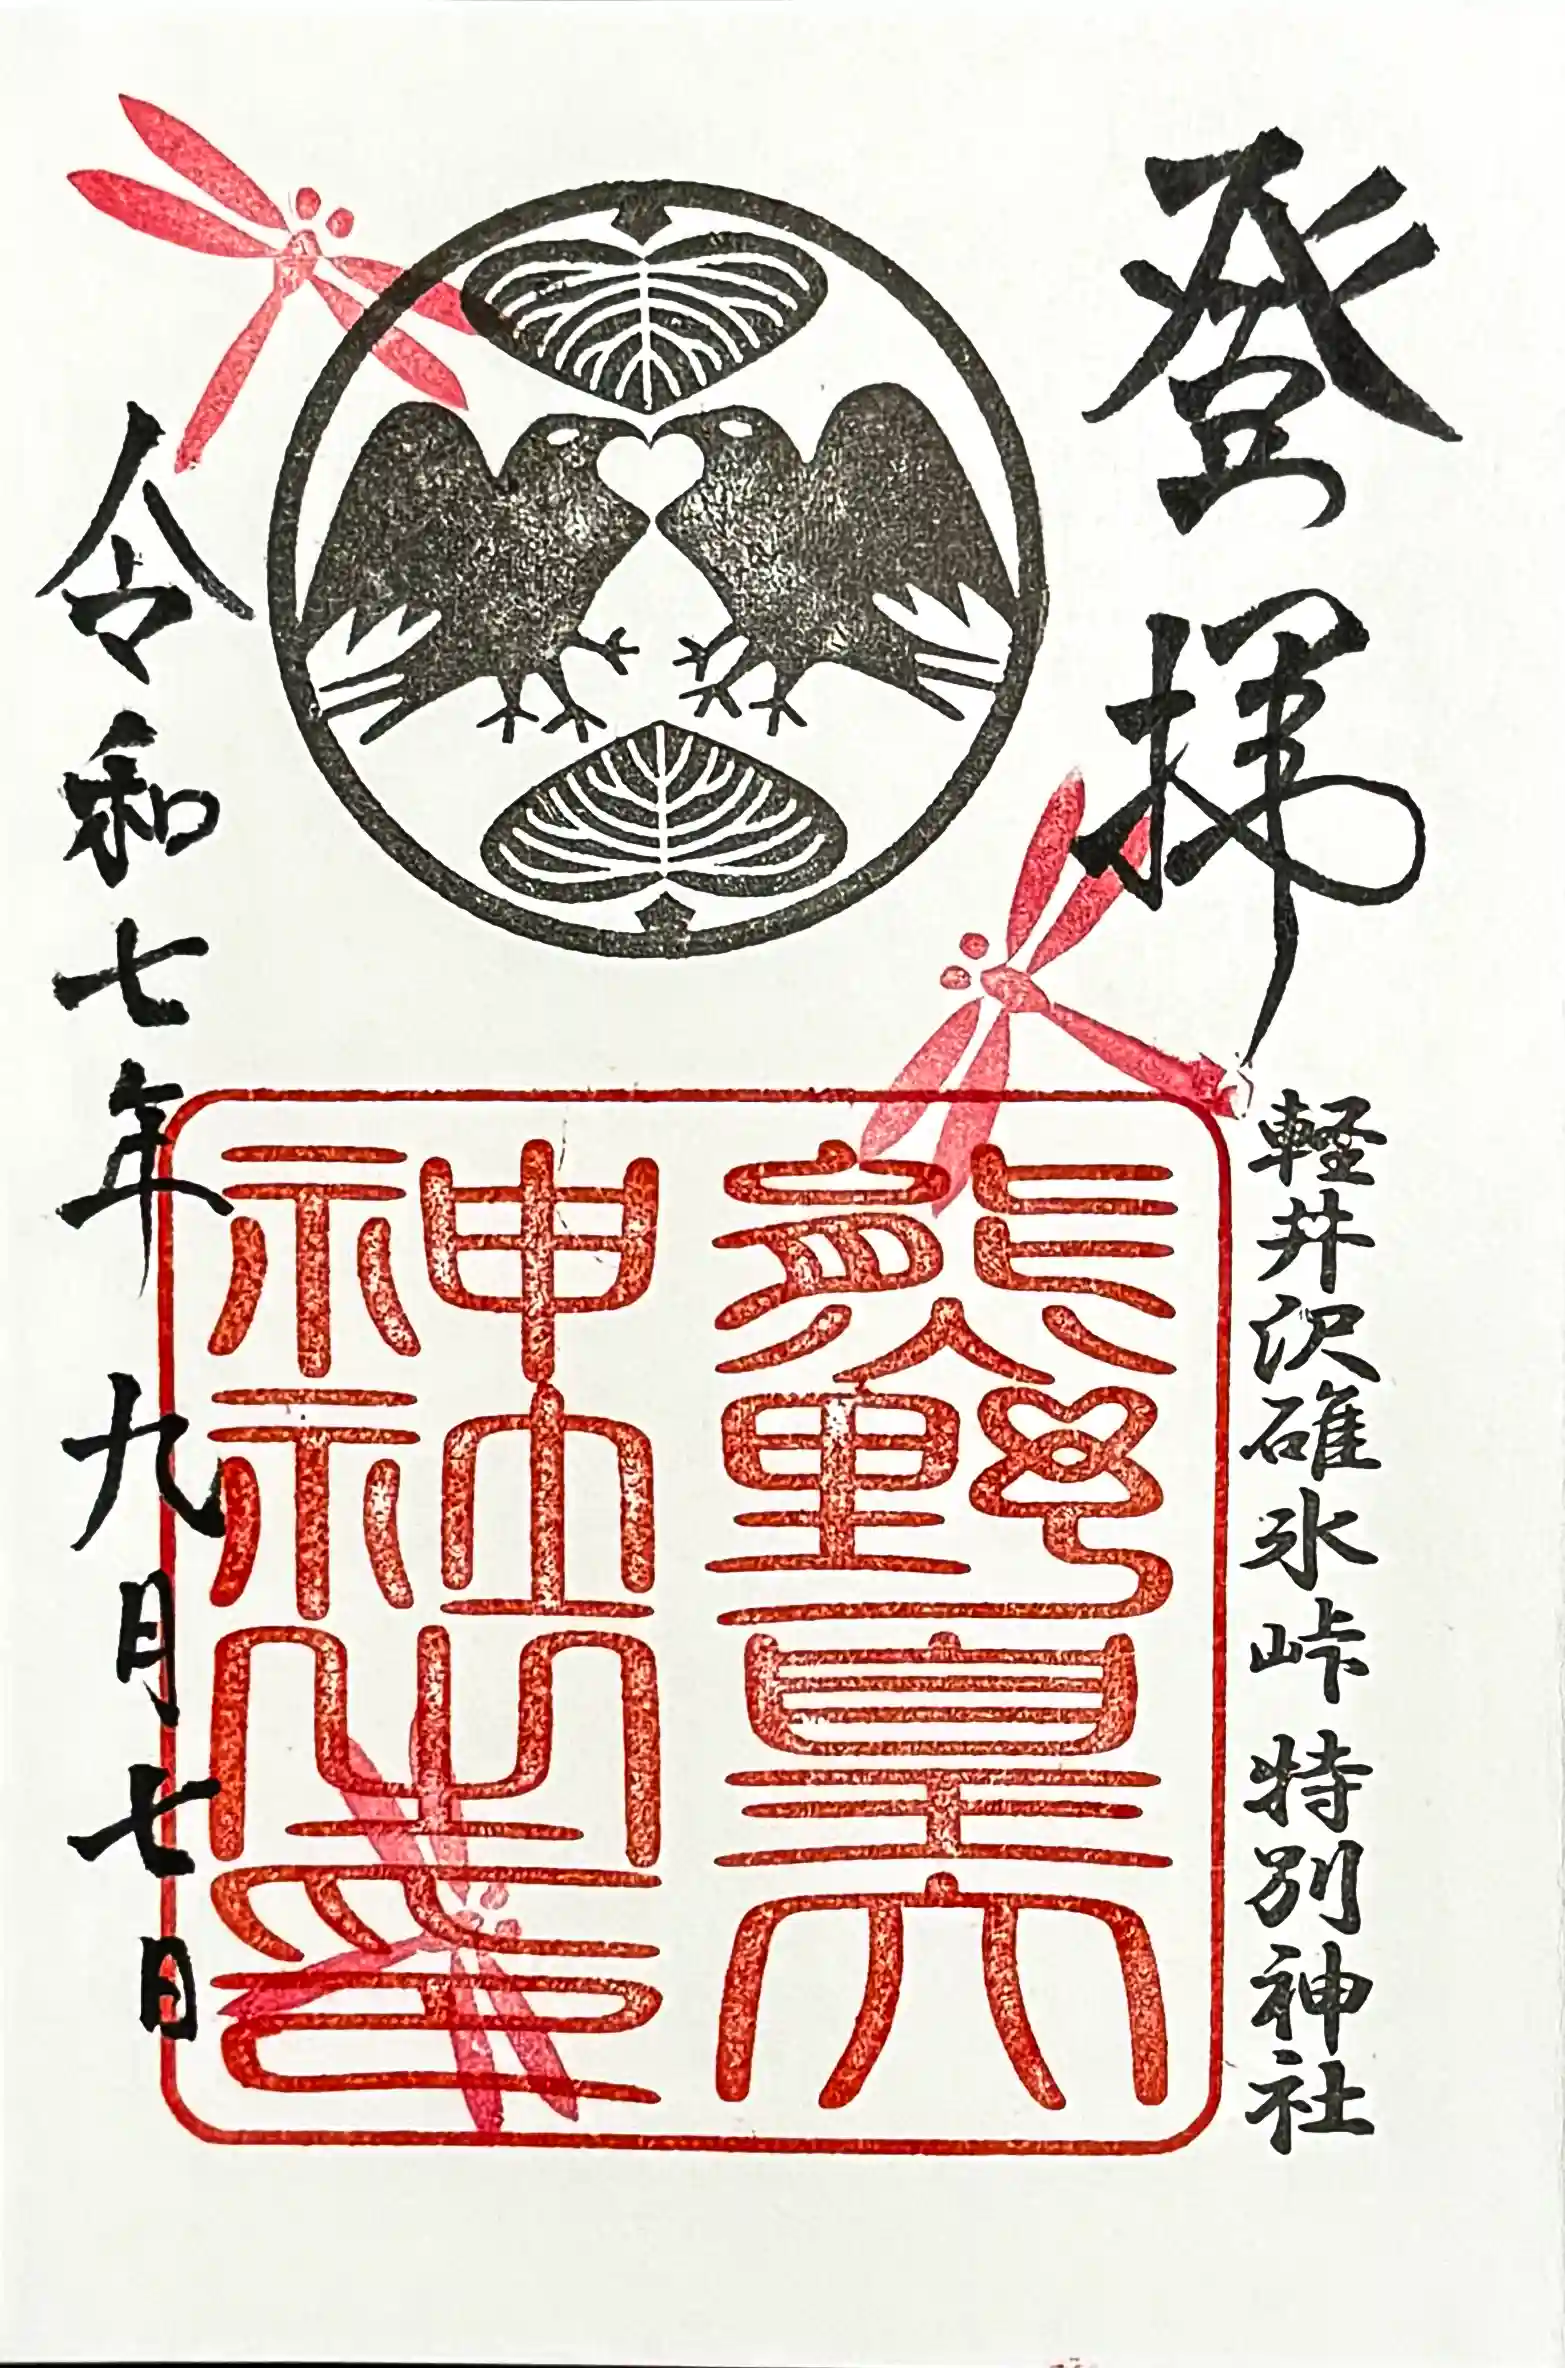 登拝
軽井沢碓氷峠 特別神社
熊野皇大
神社之印
令和七年九月七日